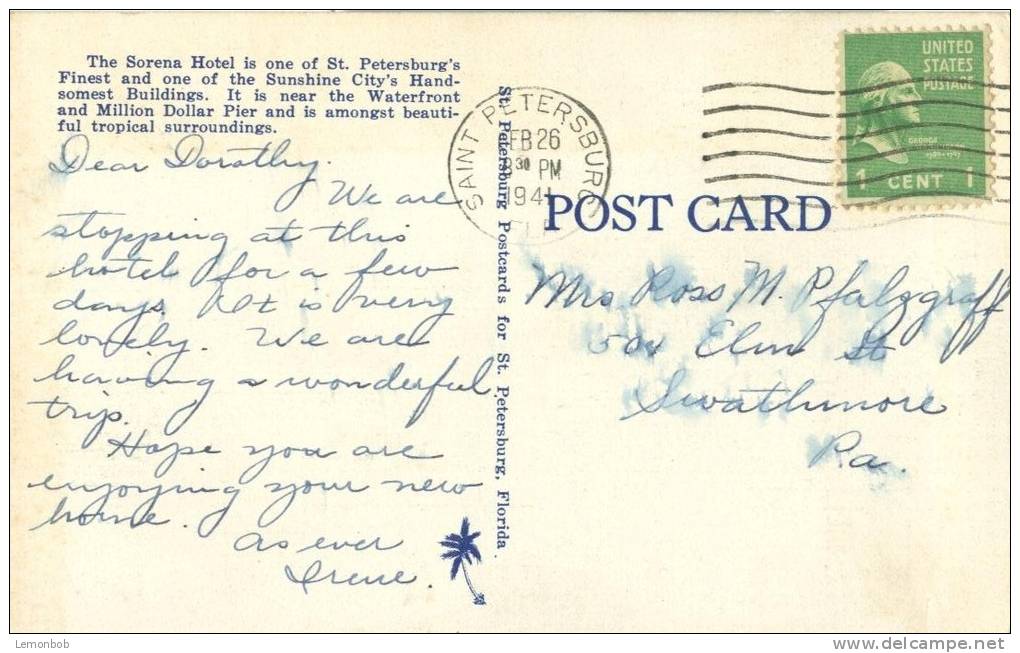 The Sorena Hotel is one of St. Petersburg's
Finest and one of the Sunshine City's Hand-
somest Buildings. It is near the Waterfront
and Million Dollar Pier and is amongst beauti-
ful tropical surroundings.
Dear Dorathy.
We are
stopping at this
hotel for a few
days. It is very
lovely. We are
having a wonderful
trip.
Hope you are
enjoying your new
home.
As ever
Irene.
St. Petersburg Postcards for St. Petersburg, Florida.
SAINT PETERSBURG
FEB 26
30 PM
1941
FLA
UNITED
STATES
POSTAGE
GEORGE
WASHINGTON
1789-1797
1 CENT 1
POST CARD
Mrs Ross M. Pfalzgraff
504 Elm St
Swathmore
Pa.
Lemonbob
delcampe.net